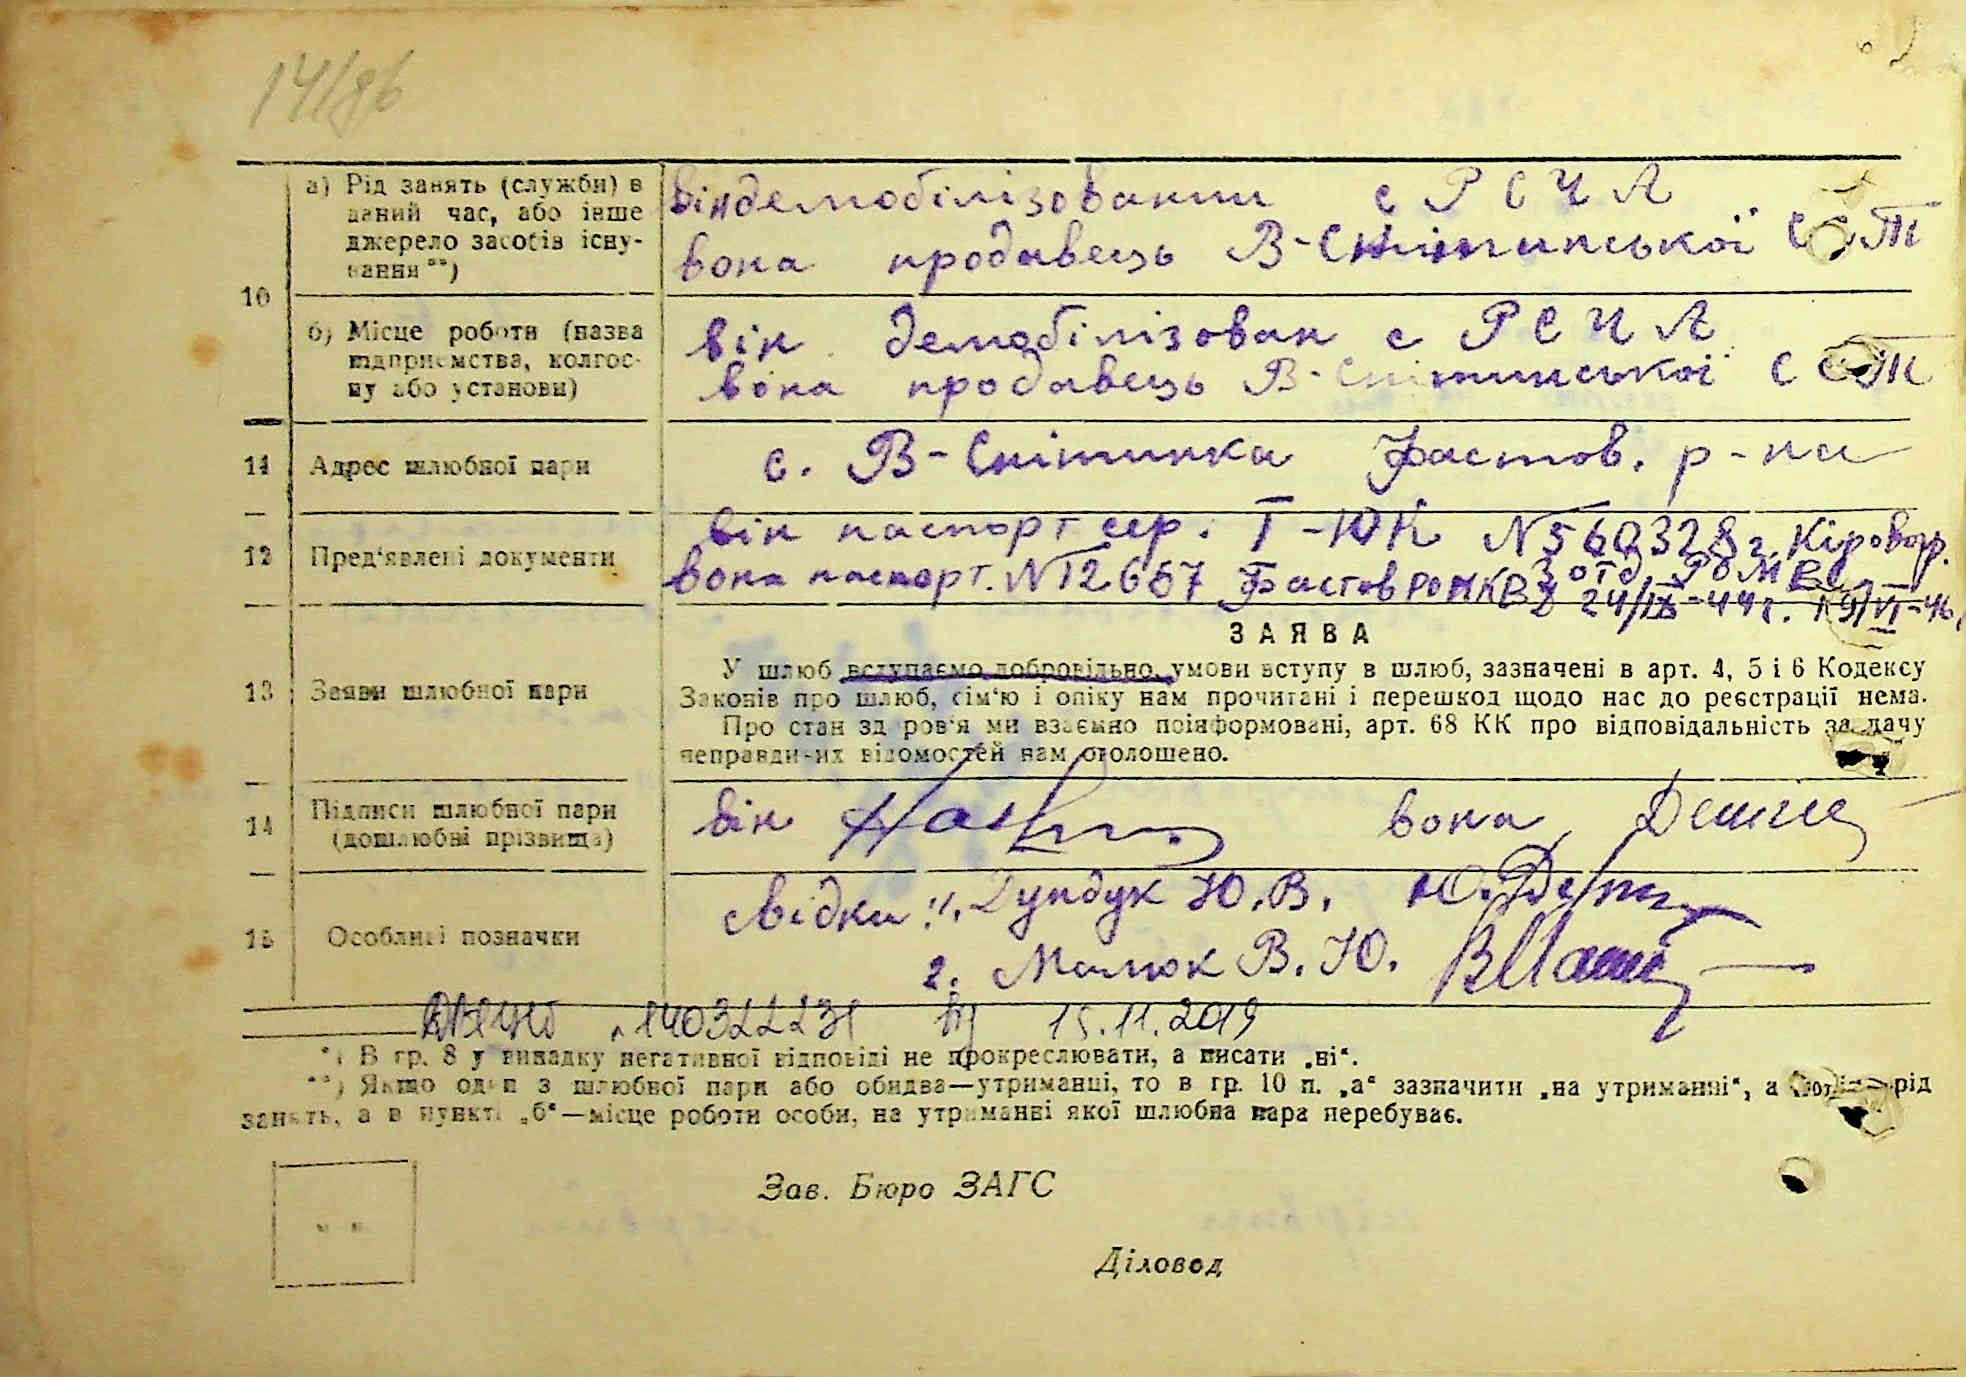 141/зв
а) Рід занять (служби) в
даний час, або інше
джерело засобів існу-
вання**)
він демобілізований с РСЧА
вона продавець В-Снітинської ССТ
10
б) Місце роботи (назва
підприємства, колгос-
пу або установи)
він демобілізован с РСЧА
вона продавець В-Снітинської ССТ
11 Адрес шлюбної пари
с. В-Снітинка Фастов. р-на
12 Пред'явлені документи
він паспорт сер. Т-ЮК № 560328 г. Кіровогр.
вона паспорт. № 12667 Фастов РО НКВД 24/IX-44 г. 19/VI-46
3 отд РОМ
ЗАЯВА
13 Заяви шлюбної пари
У шлюб вступаємо добровільно, умови вступу в шлюб, зазначені в арт. 4, 5 і 6 Кодексу
Законів про шлюб, сім'ю і опіку нам прочитані і перешкод щодо нас до реєстрації нема.
Про стан здоров'я ми взаємно поінформовані, арт. 68 КК про відповідальність за дачу
неправдивих відомостей нам оголошено.
14 Підписи шлюбної пари
(дошлюбні прізвища)
він вона
15 Особливі позначки
свідки: 1. Дундук Ю.В.
2. Малюк В.Ю.
15.11.2019
*) В гр. 8 у випадку негативної відповіді не прокреслювати, а писати „ні“.
**) Якщо один з шлюбної пари або обидва—утриманці, то в гр. 10 п. „а“ зазначити „на утриманні“, а потім—рід
занять, а в пункті „б“—місце роботи особи, на утриманні якої шлюбна пара перебуває.
Зав. Бюро ЗАГС
Діловод